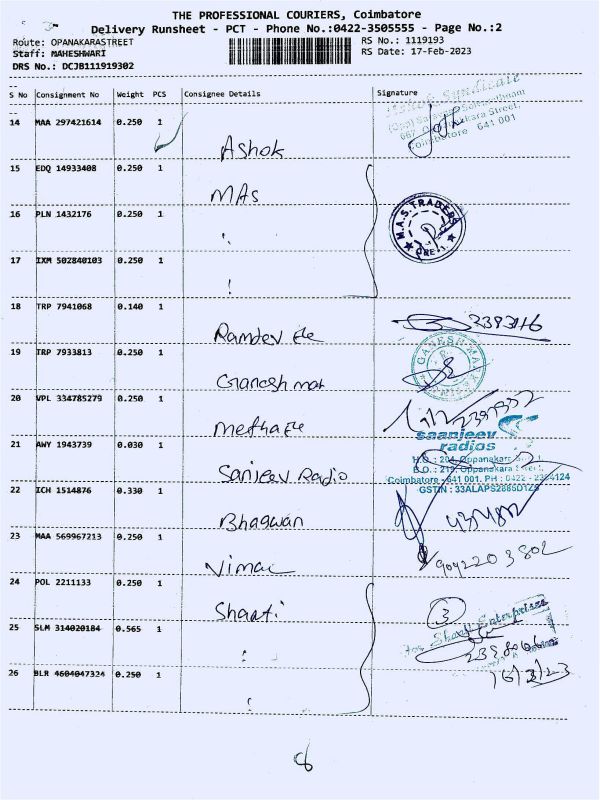 THE PROFESSIONAL COURIERS, Coimbatore
Delivery Runsheet - PCT - Phone No.:0422-3505555 - Page No.:2
Route: OPANAKARASTREET
RS No.: 1119193
Staff: MAHESHWARI
RS Date: 17-Feb-2023
DRS No.: DCJB111919302
S No Consignment No Weight PCS Consignee Details Signature
Ashok Syndicate
641 001
14 MAA 297421614 0.250 1
Ashok
15 EDQ 14933408 0.250 1
MAS
16 PLN 1432176 0.250 1
M.A.S. TRADERS
CBE-1.
17 IXM 502840103 0.250 1
18 TRP 7941068 0.140 1
Ramdev Ele
19 TRP 7933813 0.250 1
Ganesh mat
20 VPL 334785279 0.250 1
Metha Ele
saanjeev
radios
21 AWY 1943739 0.030 1
Sanjeev Radio
Coimbatore - 641 001. PH : 0422 -
22 ICH 1514876 0.330 1
Bhagwan
23 MAA 569967213 0.250 1
Vimal
24 POL 2211133 0.250 1
Shakti
3
25 SLM 314020184 0.565 1
26 BLR 4604047324 0.250 1